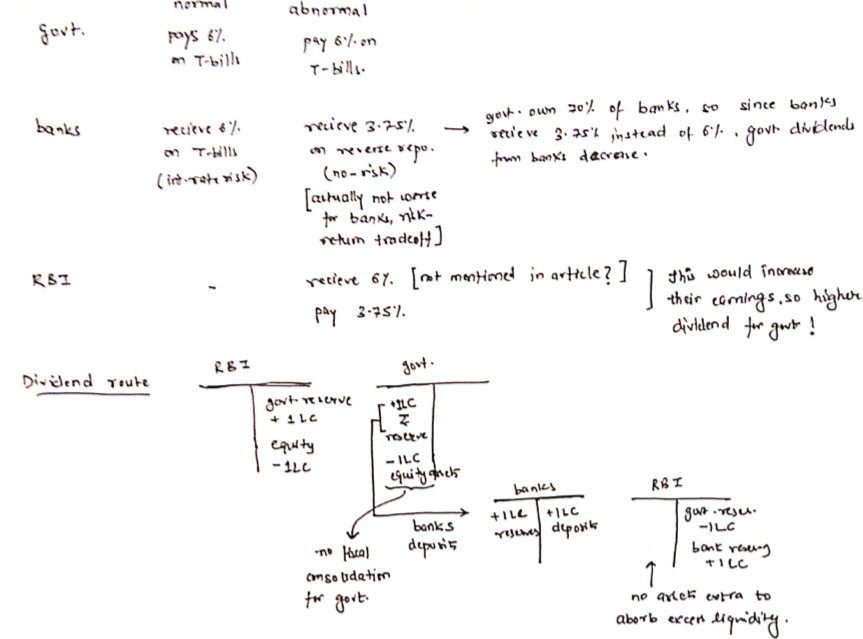 normal abnormal
govt. pays 6% pay 6% on
on T-bills T-bills.
banks recieve 6% recieve 3.75% → govt. own 70% of banks, so since banks
on T-bills on reverse repo. recieve 3.75% instead of 6%, govt dividends
(int-rate risk) (no-risk) from banks decrease.
[actually not worse
for banks, risk-
return tradeoff]
RBI - recieve 6% [not mentioned in article?] ] this would increase
pay 3.75% their earnings, so higher
dividend for govt!
Dividend route RBI govt.
govt reserve +1LC
+1LC
equity reserve
-1LC -1LC
equity assets
banks RBI
+1LC +1LC govt. reser.
reserves deposits -1LC
banks bank reserve
deposits +1LC
no fiscal
consolidation
for govt.
no assets extra to
absorb excess liquidity.